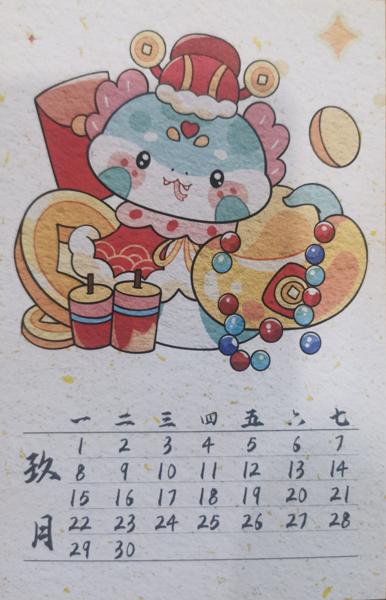 玖月
一 二 三 四 五 六 七
1 2 3 4 5 6 7
8 9 10 11 12 13 14
15 16 17 18 19 20 21
22 23 24 25 26 27 28
29 30